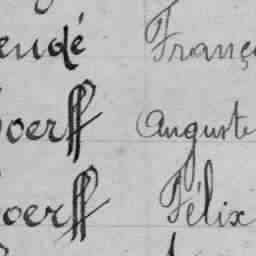 endé Franç
oerff Auguste
oerff Félix